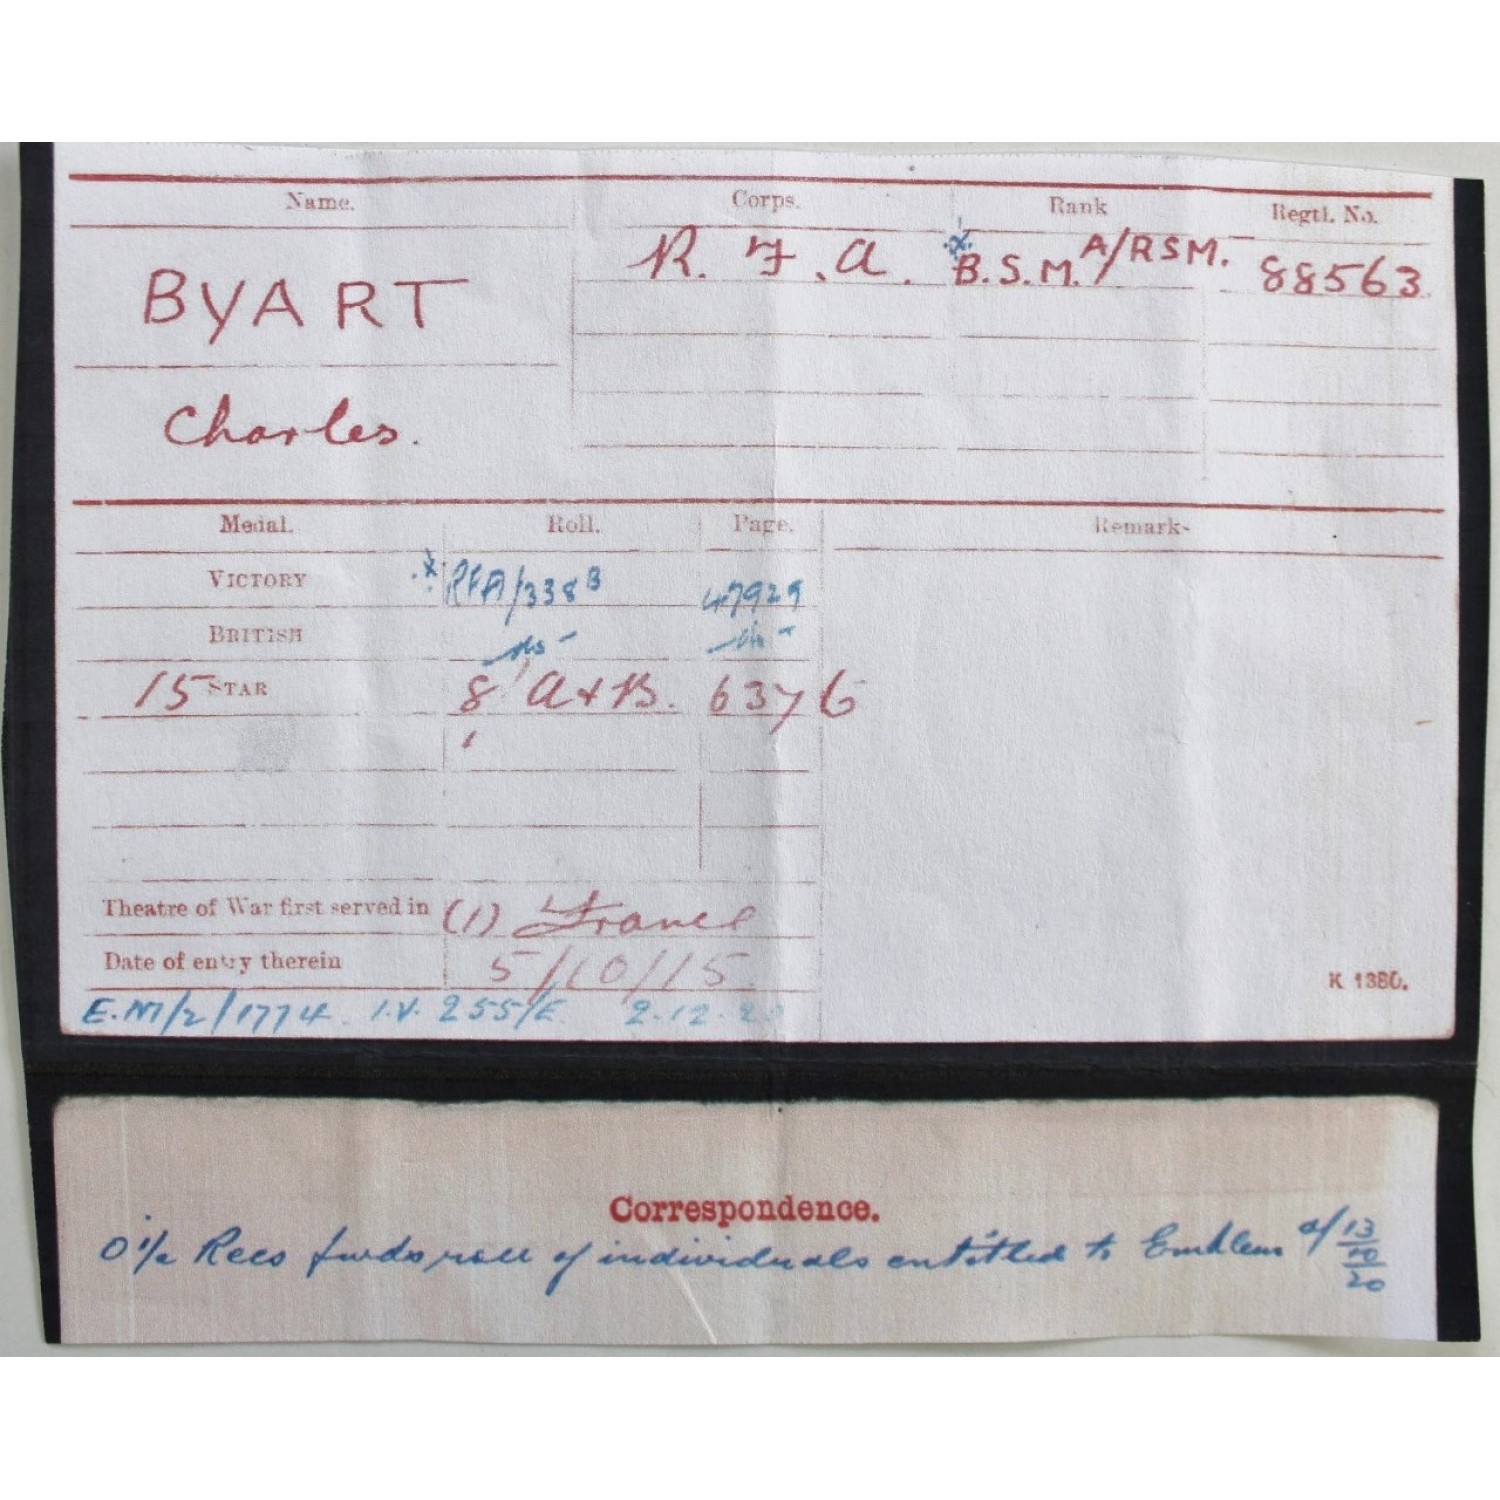 Name. Corps. Rank Regtl. No.
BYART R. F. A. B.S.M. A/RSM. 88563.
Charles.
Medal. Roll. Page. Remark-
VICTORY RFA/338B 47929
BRITISH -do- -do-
15 STAR 8 A+B. 6376
Theatre of War first served in (1) France
Date of entry therein 5/10/15.
E.M/2/1774 I.V. 255/E 2.12.20
K 1380.
Correspondence.
O i/c Recs fwds roll of individuals entitled to Emblem d/ 13/10/20